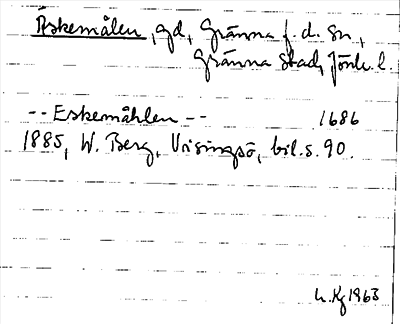 Äskemålen, gd, Gränna f.d. sn,
Gränna stad, Jönk. l.
-- Eskemåhlen -- 1686
1885, W. Berg, Visingsö, bil. s. 90.
1963